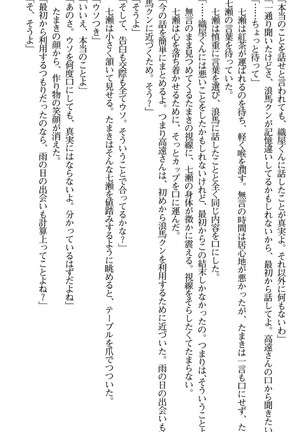 「本当のことを話せと言われても、織屋くんに話したことが真実よ。それ以外に何もないわ」
「一通り聞いたけどさ、浪馬クンが記憶違いしてるかもしれないから、最初から話してよ。高遠さんの口から聞きたい」
「……ちょっと待って」
七瀬は紅茶が運ばれるのを待ち、軽く喉を潤す。無言の時間は居心地が悪かったが、たまきは一言も口にせず、た
七瀬の言葉を待っていた。
七瀬は慎重に言葉を選び、浪馬に話したことと全く同じ内容を口にした。
「……織屋くんには悪いことをしたかもしれないけど、最初からこの結末しかなかった。つまりは、そういうこと
無言のまま見つめてくるたまきの視線に、七瀬の身体が微かに震える。視線をそらしたくてたまらない。
七瀬は心を落ち着かせるために、そっとカップを口に運んだ。
「今の話を簡単にまとめるよ。つまり高遠さんは、初めから浪馬クンを利用するために近づいた。雨の日の出会いも
馬クンに近づくため。そうね？」
「そうよ」
「そして、告白も交際も全てウソ。そういうことで合ってるかな？」
七瀬は小さく頷いて見せる。たまきはそんな七瀬を値踏みするように眺めると、テーブルを爪でつついた。
「ウソつき」
「いいえ、本当のことよ」
「あのさ、ウソを何度口にしても、真実にはならないよ。分かっているはずだよね」
たまきの顔から、作り物の笑顔が消えた。
「最初から利用するつもりだったのなら、雨の日の出会いも計算上ってことよね」
「え、そうよ」